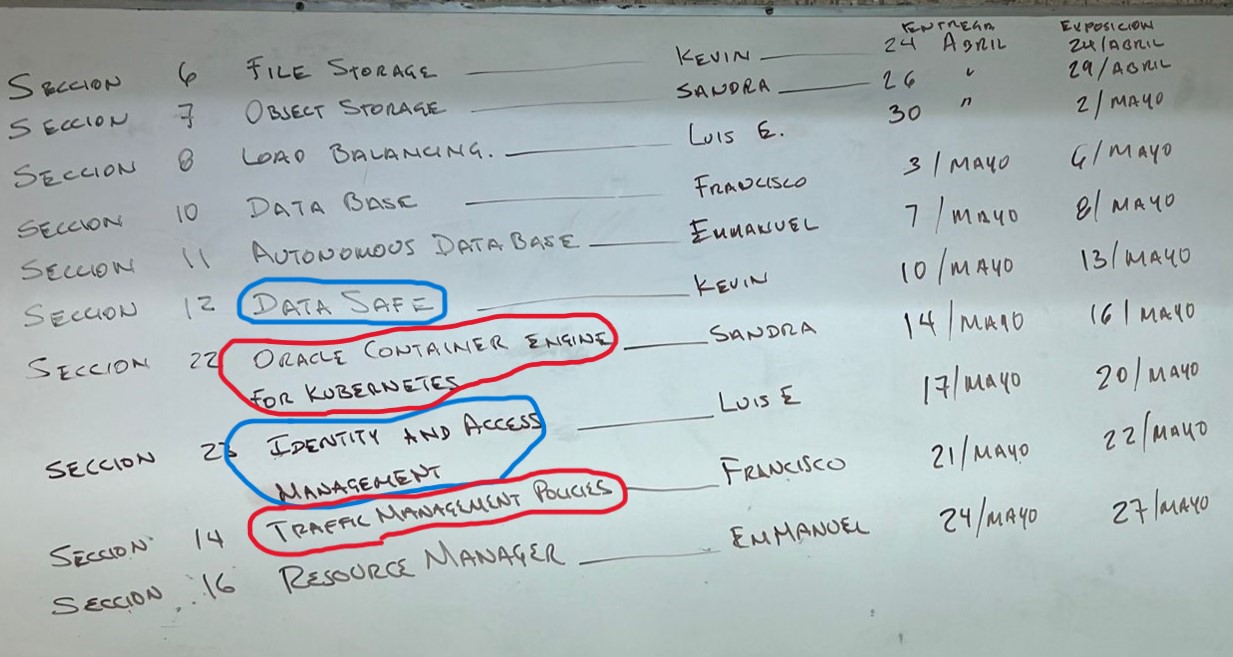 ENTREGA EXPOSICION
SECCION 6 FILE STORAGE KEVIN 24 ABRIL 24/ABRIL
SECCION 7 OBJECT STORAGE SANDRA 26 " 29/ABRIL
SECCION 8 LOAD BALANCING. LUIS E. 30 " 2/MAYO
SECCION 10 DATA BASE FRANCISCO 3/MAYO 6/MAYO
SECCION 11 AUTONOMOUS DATA BASE EMMANUEL 7/MAYO 8/MAYO
SECCION 12 DATA SAFE KEVIN 10/MAYO 13/MAYO
SECCION 22 ORACLE CONTAINER ENGINE SANDRA 14/MAYO 16/MAYO
FOR KUBERNETES
SECCION 23 IDENTITY AND ACCESS LUIS E 17/MAYO 20/MAYO
MANAGEMENT
SECCION 14 TRAFFIC MANAGEMENT POLICIES FRANCISCO 21/MAYO 22/MAYO
SECCION 16 RESOURCE MANAGER EMMANUEL 24/MAYO 27/MAYO